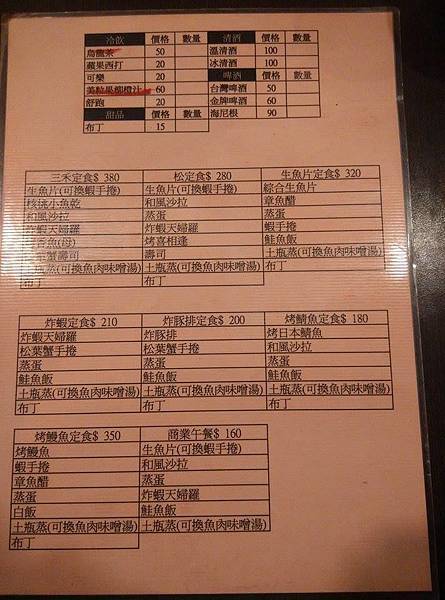 冷飲 價格 數量 清酒 價格 數量
烏龍茶 50 溫清酒 100
蘋果西打 20 冰清酒 100
可樂 20 啤酒 價格 數量
美粒果柳橙汁 60 台灣啤酒 50
舒跑 20 金牌啤酒 60
甜品 價格 數量 海尼根 90
布丁 15
三禾定食$ 380
生魚片(可換蝦手捲)
核桃小魚乾
和風沙拉
炸蝦天婦羅
香魚(母)
蟹壽司
土瓶蒸(可換魚肉味噌湯)
布丁
松定食$ 280
生魚片(可換蝦手捲)
和風沙拉
蒸蛋
炸蝦天婦羅
烤喜相逢
壽司
土瓶蒸(可換魚肉味噌湯)
布丁
生魚片定食$ 320
綜合生魚片
章魚醋
蒸蛋
蝦手捲
鮭魚飯
土瓶蒸(可換魚肉味噌湯)
布丁
炸蝦定食$ 210
炸蝦天婦羅
松葉蟹手捲
蒸蛋
鮭魚飯
土瓶蒸(可換魚肉味噌湯)
布丁
炸豚排定食$ 200
炸豚排
松葉蟹手捲
蒸蛋
鮭魚飯
土瓶蒸(可換魚肉味噌湯)
布丁
烤鯖魚定食$ 180
烤日本鯖魚
和風沙拉
蒸蛋
鮭魚飯
土瓶蒸(可換魚肉味噌湯)
布丁
烤鰻魚定食$ 350
烤鰻魚
蝦手捲
章魚醋
蒸蛋
白飯
土瓶蒸(可換魚肉味噌湯)
布丁
商業午餐$ 160
生魚片(可換蝦手捲)
和風沙拉
蒸蛋
炸蝦天婦羅
鮭魚飯
土瓶蒸(可換魚肉味噌湯)